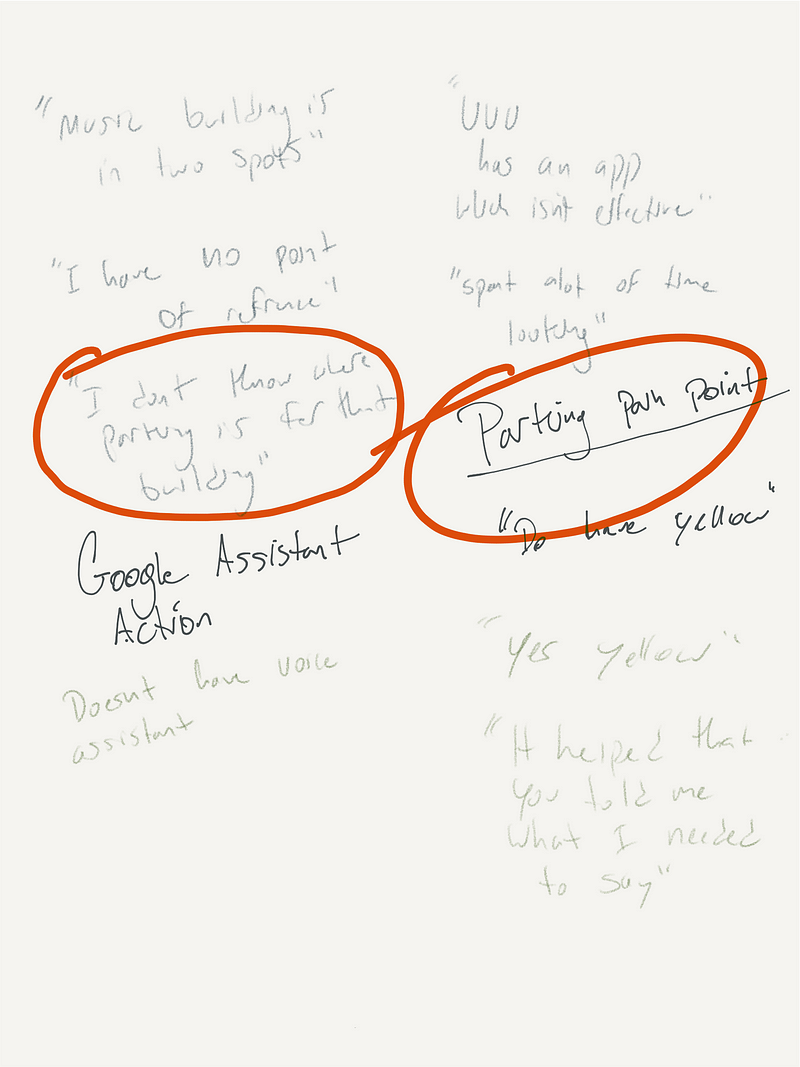 "Music building is
in two spots"
"I have no point
of refrence"
"I dont know where
parking is for that
building"
Google Assistant
Action
Doesnt have voice
assistant
"UVU
has an app
which isnt effective"
"spent alot of time
looking"
Parking pain point
"Do have yellow"
"Yes yellow"
"It helped that
you told me
what I needed
to say"